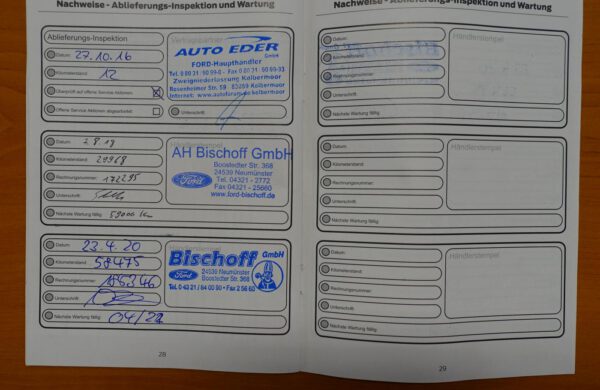 Nachweise - Ablieferungs-Inspektion und Wartung
Ablieferungs-Inspektion
Datum: 27.10.16
Kilometerstand: 12
Überprüft auf offene Service Aktionen
Offene Service Aktionen abgearbeitet:
Vertragspartner
AUTO EDER
GmbH
FORD-Haupthändler
Zweigniederlassung Kolbermoor
Rosenheimer Str. 59 83059 Kolbermoor
Unterschrift:
Datum: 2.8.19
Kilometerstand: 29968
Rechnungsnummer: 172295
Unterschrift:
Nächste Wartung fällig: 59000 km
AH Bischoff GmbH
Boostedter Str. 368
24539 Neumünster
Ford
Tel. 04321 - 2772
Fax 04321 - 25660
www.ford-bischoff.de
Datum: 23.4.20
Kilometerstand: 58475
Rechnungsnummer:
Unterschrift:
Nächste Wartung fällig: 04/22
Händlerstempel
Bischoff GmbH
Ford
24539 Neumünster
Boostedter Str. 368
Tel. 0 43 21 / 84 00 90 • Fax 2 56 60
28
Nachweise - Ablieferungs-Inspektion und Wartung
Datum:
Kilometerstand:
Rechnungsnummer:
Unterschrift:
Nächste Wartung fällig:
Händlerstempel
Datum:
Kilometerstand:
Rechnungsnummer:
Unterschrift:
Nächste Wartung fällig:
Händlerstempel
Datum:
Kilometerstand:
Rechnungsnummer:
Unterschrift:
Nächste Wartung fällig:
Händlerstempel
29